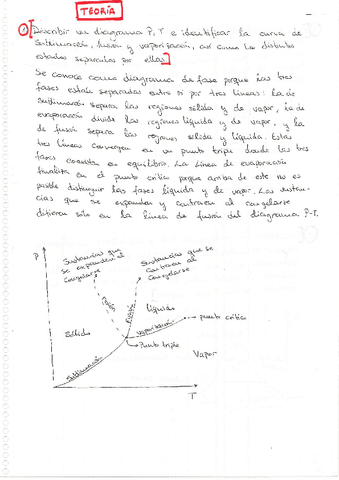 TEORÍA
① Describir un diagrama P,T e identificar la curva de
sublimación, fusión y vaporización, así como los distintos
estados separados por ellas.
Se conoce como diagrama de fase porque las tres
fases están separadas entre sí por tres líneas: La de
sublimación separa las regiones sólida y de vapor, la de
evaporación divide las regiones líquida y de vapor, y la
de fusión separa las regiones sólida y líquida. Estas
tres líneas convergen en un punto triple donde las tres
fases coexisten en equilibrio. La línea de evaporación
finaliza en el punto crítico porque arriba de este no es
posible distinguir las fases líquida y de vapor. Las sustan-
cias que se expanden y contraen al congelarse
difieren sólo en la línea de fusión del diagrama P-T.
P
Sustancias que
se expanden al
congelarse
Sustancias que se
contraen al
congelarse
Fusión
Fusión
Líquido
Vaporización
punto crítico
Sólido
Punto triple
Vapor
Sublimación
T